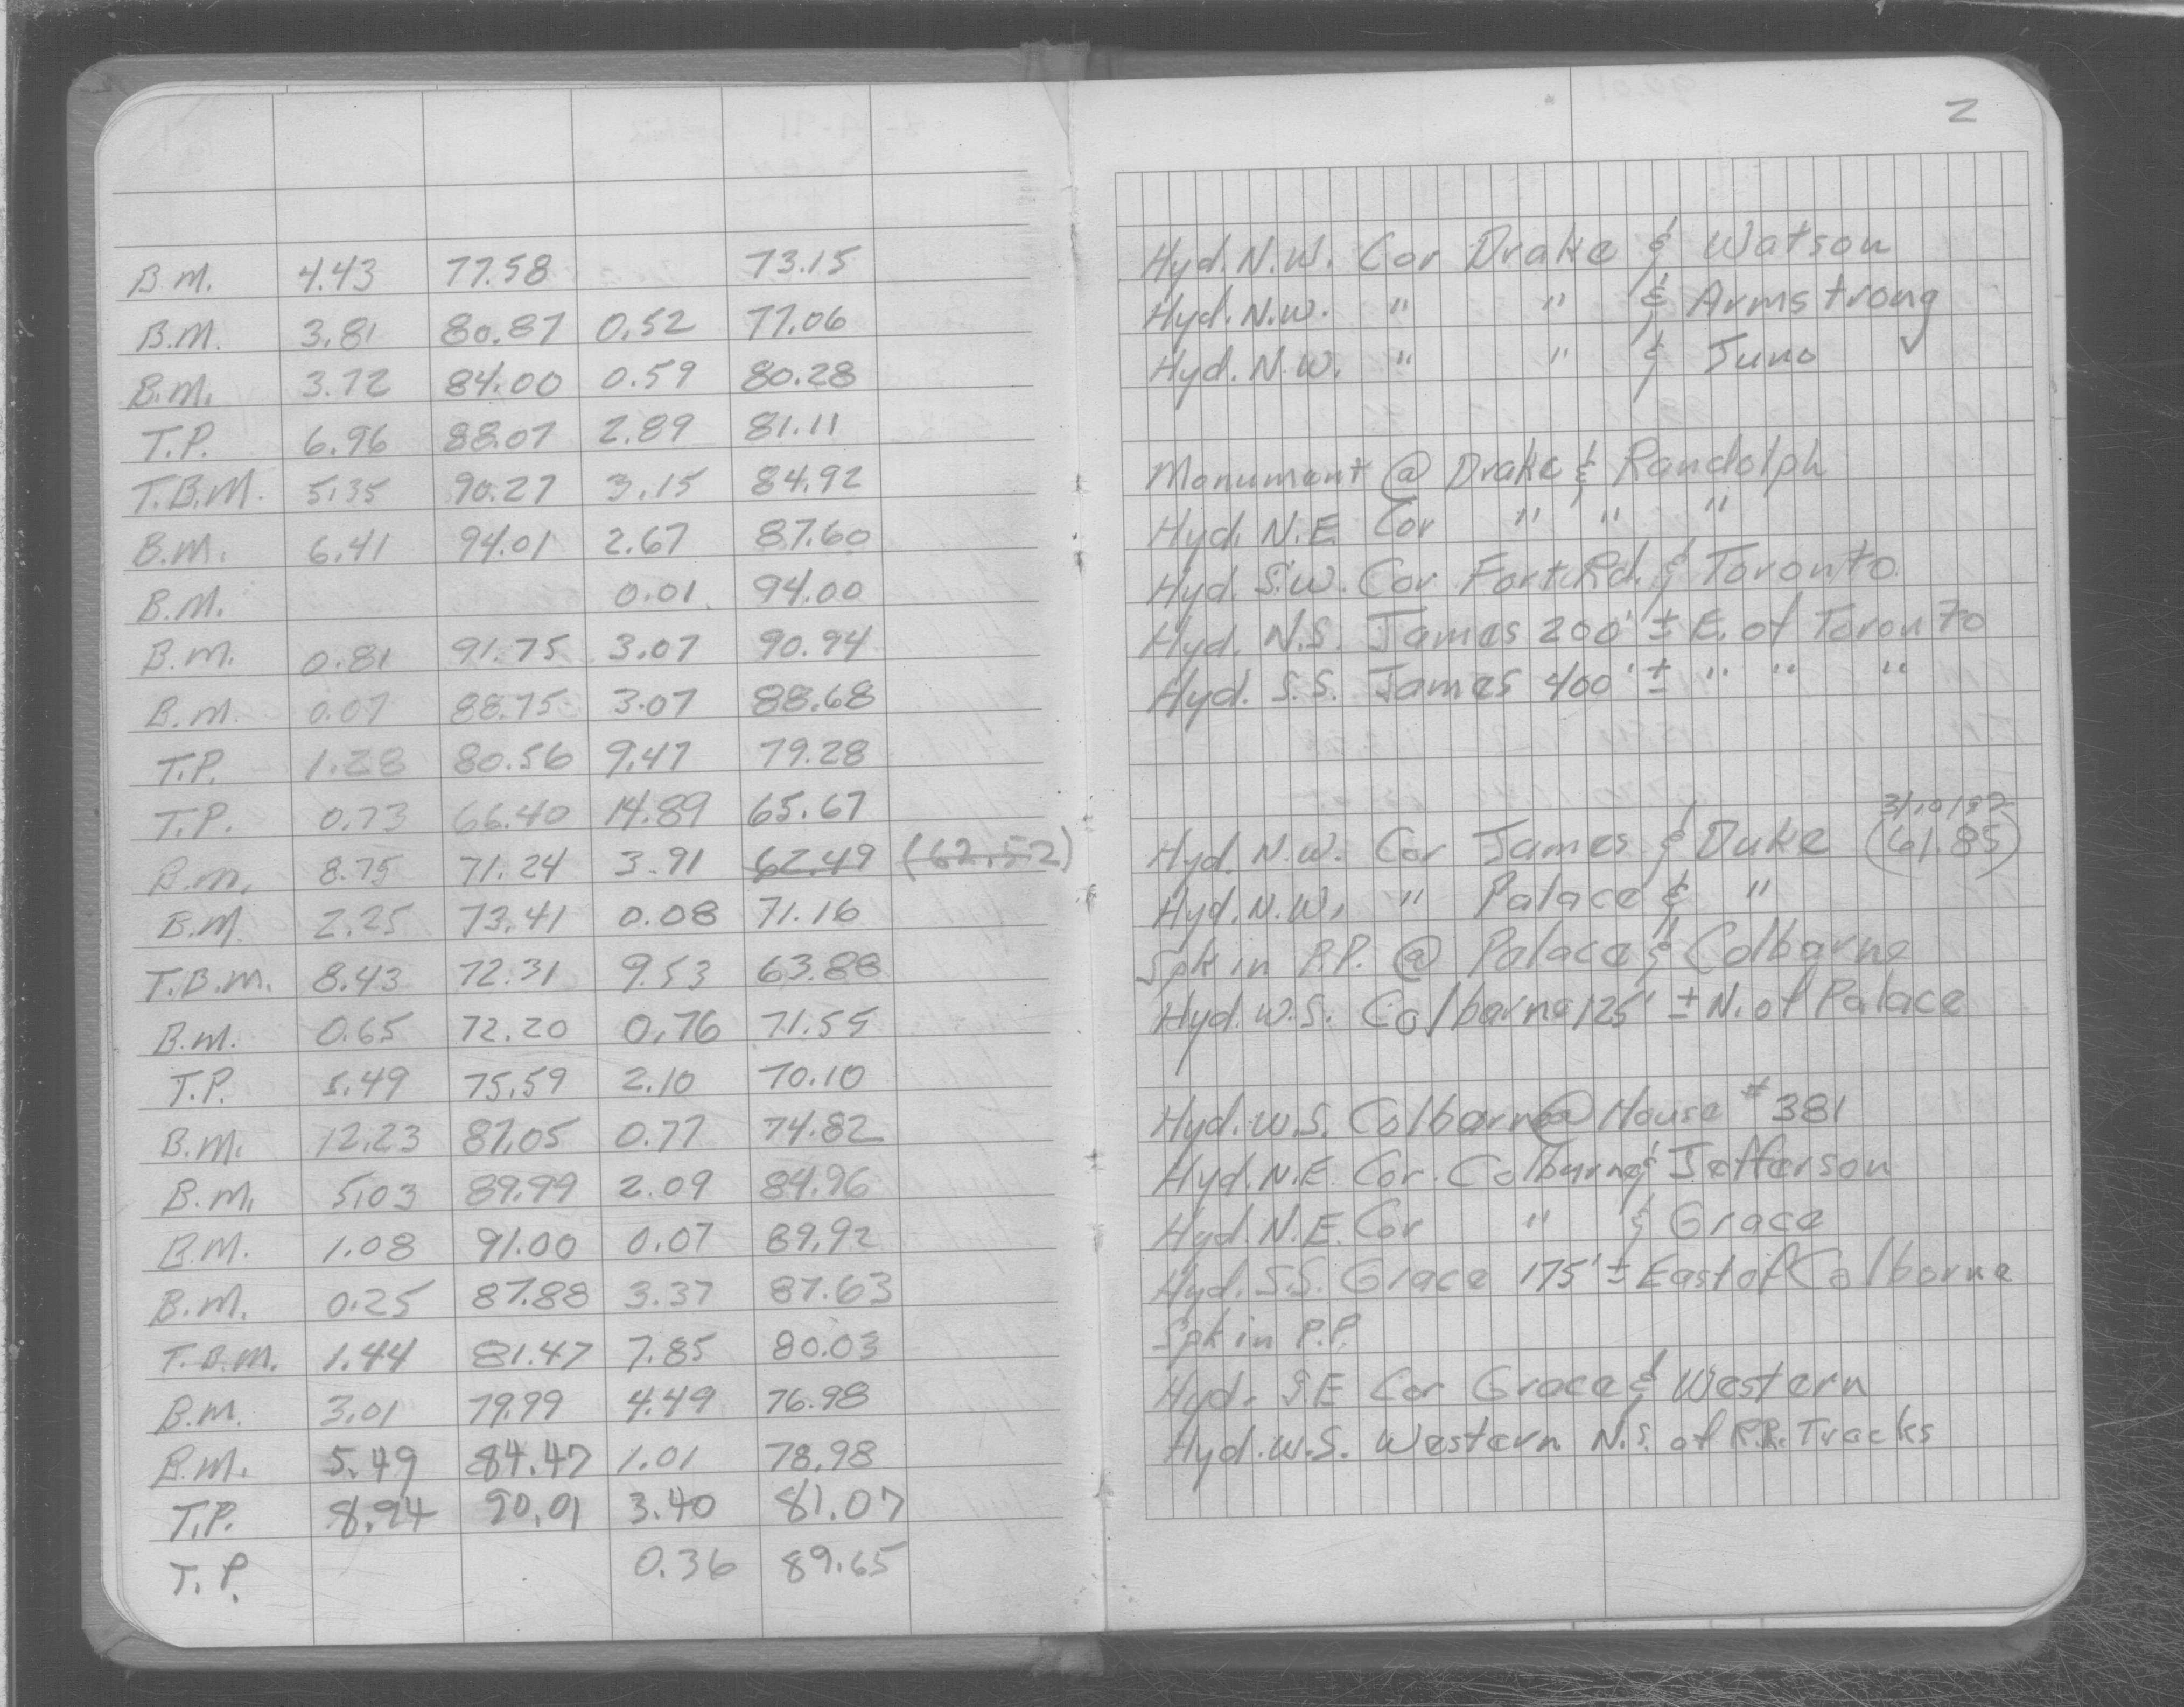 B.M. 4.43 77.58 73.15
B.M. 3.81 80.87 0.52 77.06
B.M. 3.72 84.00 0.59 80.28
T.P. 6.96 88.07 2.89 81.11
T.B.M. 5.35 90.27 3.15 84.92
B.M. 6.41 94.01 2.67 87.60
B.M. 0.01 94.00
B.M. 0.81 91.75 3.07 90.94
B.M. 0.07 88.75 3.07 88.68
T.P. 1.28 80.56 9.47 79.28
T.P. 0.73 66.40 14.89 65.67
B.M. 8.75 71.24 3.91 62.49 (62.52)
B.M. 2.25 73.41 0.08 71.16
T.B.M. 8.43 72.31 9.53 63.88
B.M. 0.65 72.20 0.76 71.55
T.P. 5.49 75.59 2.10 70.10
B.M. 12.23 87.05 0.77 74.82
B.M. 5.03 89.99 2.09 84.96
B.M. 1.08 91.00 0.07 89.92
B.M. 0.25 87.88 3.37 87.63
T.B.M. 1.44 81.47 7.85 80.03
B.M. 3.01 79.99 4.49 76.98
B.M. 5.49 84.47 1.01 78.98
T.P. 8.94 90.01 3.40 81.07
T.P. 0.36 89.65
2
Hyd. N.W. Cor Drake & Watson
Hyd. N.W. " " & Armstrong
Hyd. N.W. " " & Juno ✓
Monument @ Drake & Randolph
Hyd. N.E. Cor " " "
Hyd. S.W. Cor Fort Rd. & Toronto
Hyd. N.S. James 200' ± E. of Toronto
Hyd. S.S. James 400' ± " " "
Hyd. N.W. Cor James & Duke (61.85)
Hyd. N.W. " Palace & "
Spk in P.P. @ Palace & Colborne
Hyd. W.S. Colborne 125' ± N. of Palace
Hyd. W.S. Colborne @ House # 381
Hyd. N.E. Cor. Colburne & Jefferson
Hyd. N.E. Cor " & Grace
Hyd. S.S. Grace 175' ± East of Colborne
Spk in P.P.
Hyd. S.E Cor Grace & Western
Hyd. W.S. Western N.S. of R.R. Tracks